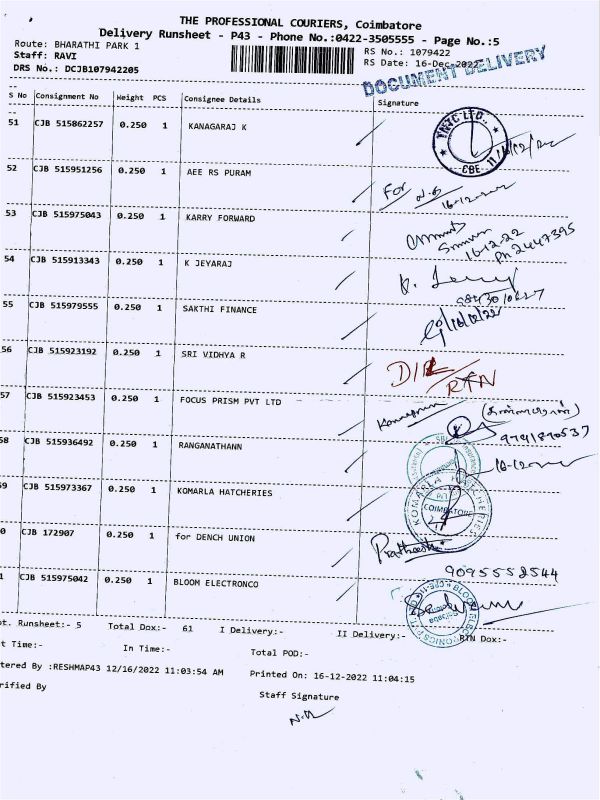 THE PROFESSIONAL COURIERS, Coimbatore
Delivery Runsheet - P43 - Phone No.:0422-3505555 - Page No.:5
Route: BHARATHI PARK 1 RS No.: 1079422
Staff: RAVI RS Date: 16-Dec-2022
DRS No.: DCJB107942205 DOCUMENT DELIVERY
S No Consignment No Weight PCS Consignee Details Signature
51 CJB 515862257 0.250 1 KANAGARAJ K
CBE
52 CJB 515951256 0.250 1 AEE RS PURAM
For 16-12-2022
53 CJB 515975043 0.250 1 KARRY FORWARD
16-12-22
Ph 2447395
54 CJB 515913343 0.250 1 K JEYARAJ
55 CJB 515979555 0.250 1 SAKTHI FINANCE
16/12/22
56 CJB 515923192 0.250 1 SRI VIDHYA R
RTN
57 CJB 515923453 0.250 1 FOCUS PRISM PVT LTD
9791890537
58 CJB 515936492 0.250 1 RANGANATHANN
59 CJB 515973367 0.250 1 KOMARLA HATCHERIES
KOMARLA HATCHERIES
COIMBATORE
0 CJB 172907 0.250 1 for DENCH UNION
9095552544
1 CJB 515975042 0.250 1 BLOOM ELECTRONCO
ot. Runsheet:- 5 Total Dox:- 61 I Delivery:- II Delivery:- RTN Dox:-
t Time:- In Time:- Total POD:-
tered By :RESHMAP43 12/16/2022 11:03:54 AM Printed On: 16-12-2022 11:04:15
rified By Staff Signature